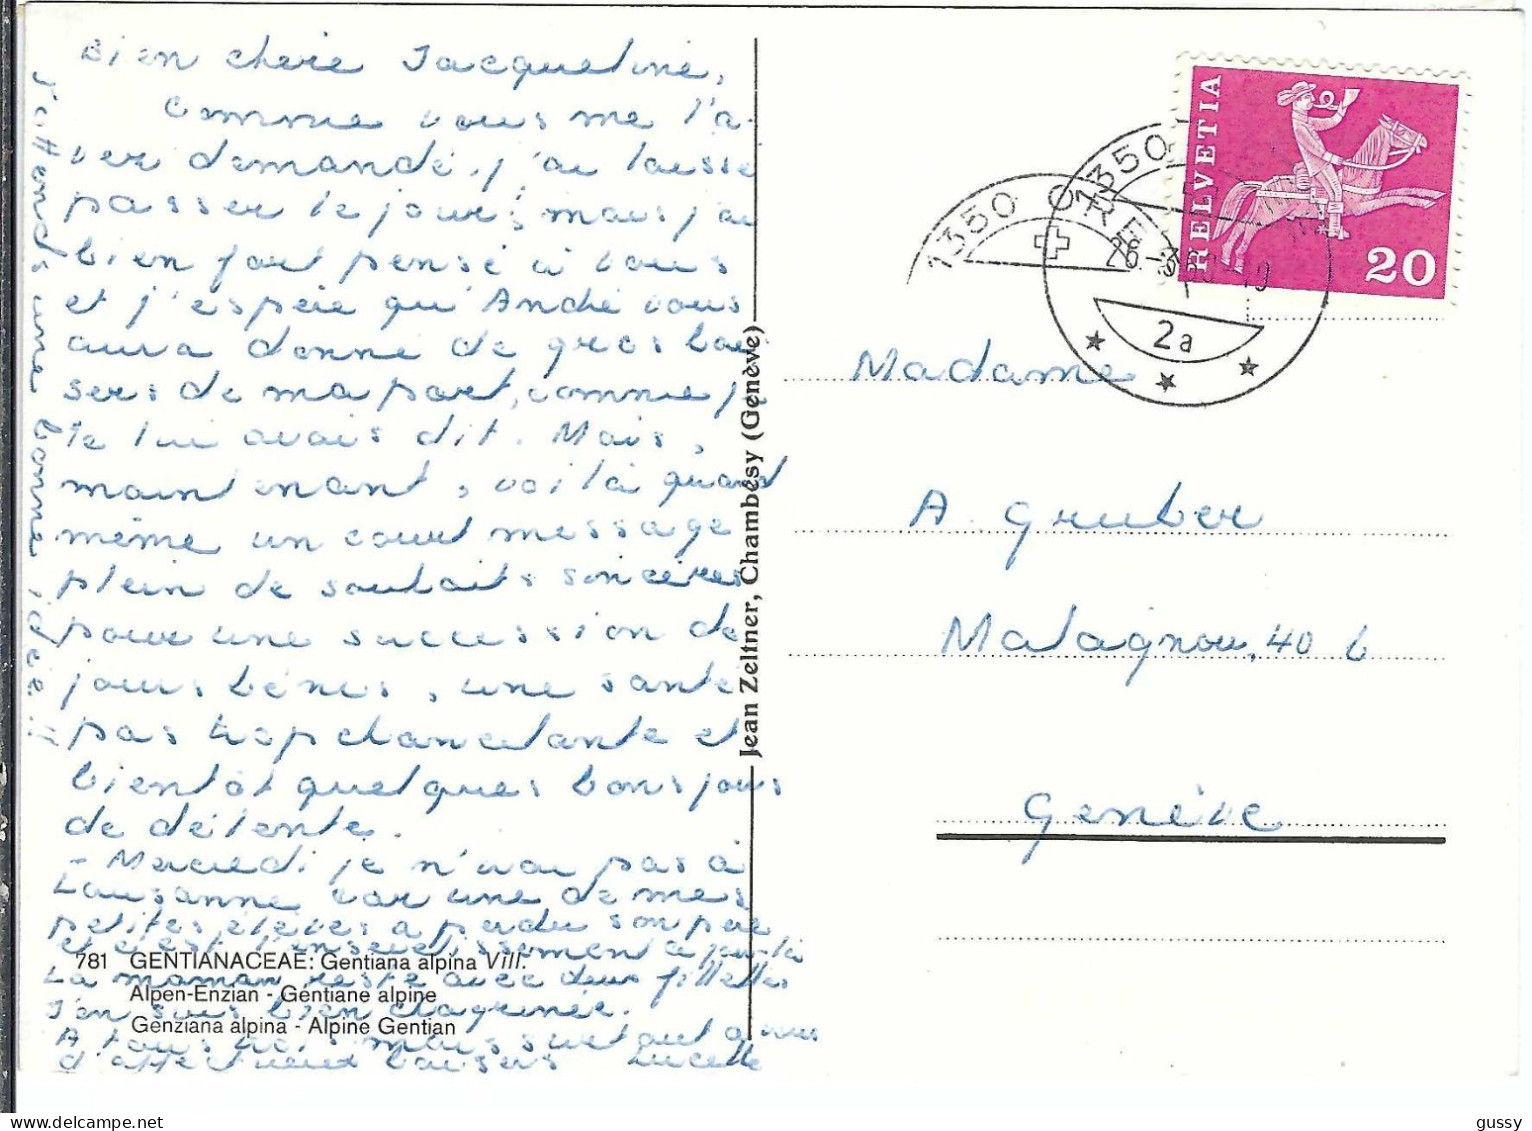 Bien chère Jacqueline,
Comme vous me l'a-
vez demandé, j'ai laissé
passer le jour, mais j'ai
bien fort pensé à vous
et j'espère qu'André vous
aura donné de gros bai
sers de ma part, comme je
le lui avais dit. Mais,
maintenant, voilà quand
même un court message
plein de souhaits sincères
pour une succession de
jours bénis, une santé
pas trop chancelante et
bientôt quelques bons jours
de détente.
- Mercredi je n'irai pas à
Lausanne car une de mes
petites élèves a perdu son père
et c'est l'ensevelissement ce jour-là
La maman reste avec deux fillettes
J'en suis bien chagrinée.
A tous mais surtout à vous
d'affectueux baisers Lucette
J'attends une bonne idée !!
781 GENTIANACEAE: Gentiana alpina Vill.
Alpen-Enzian - Gentiane alpine
Genziana alpina - Alpine Gentian
Jean Zeltner, Chambésy (Genève)
HELVETIA
20
1350 ORBE
1350
2a
Madame
A. Gruber
Malagnou, 40 b
Genève
gussy